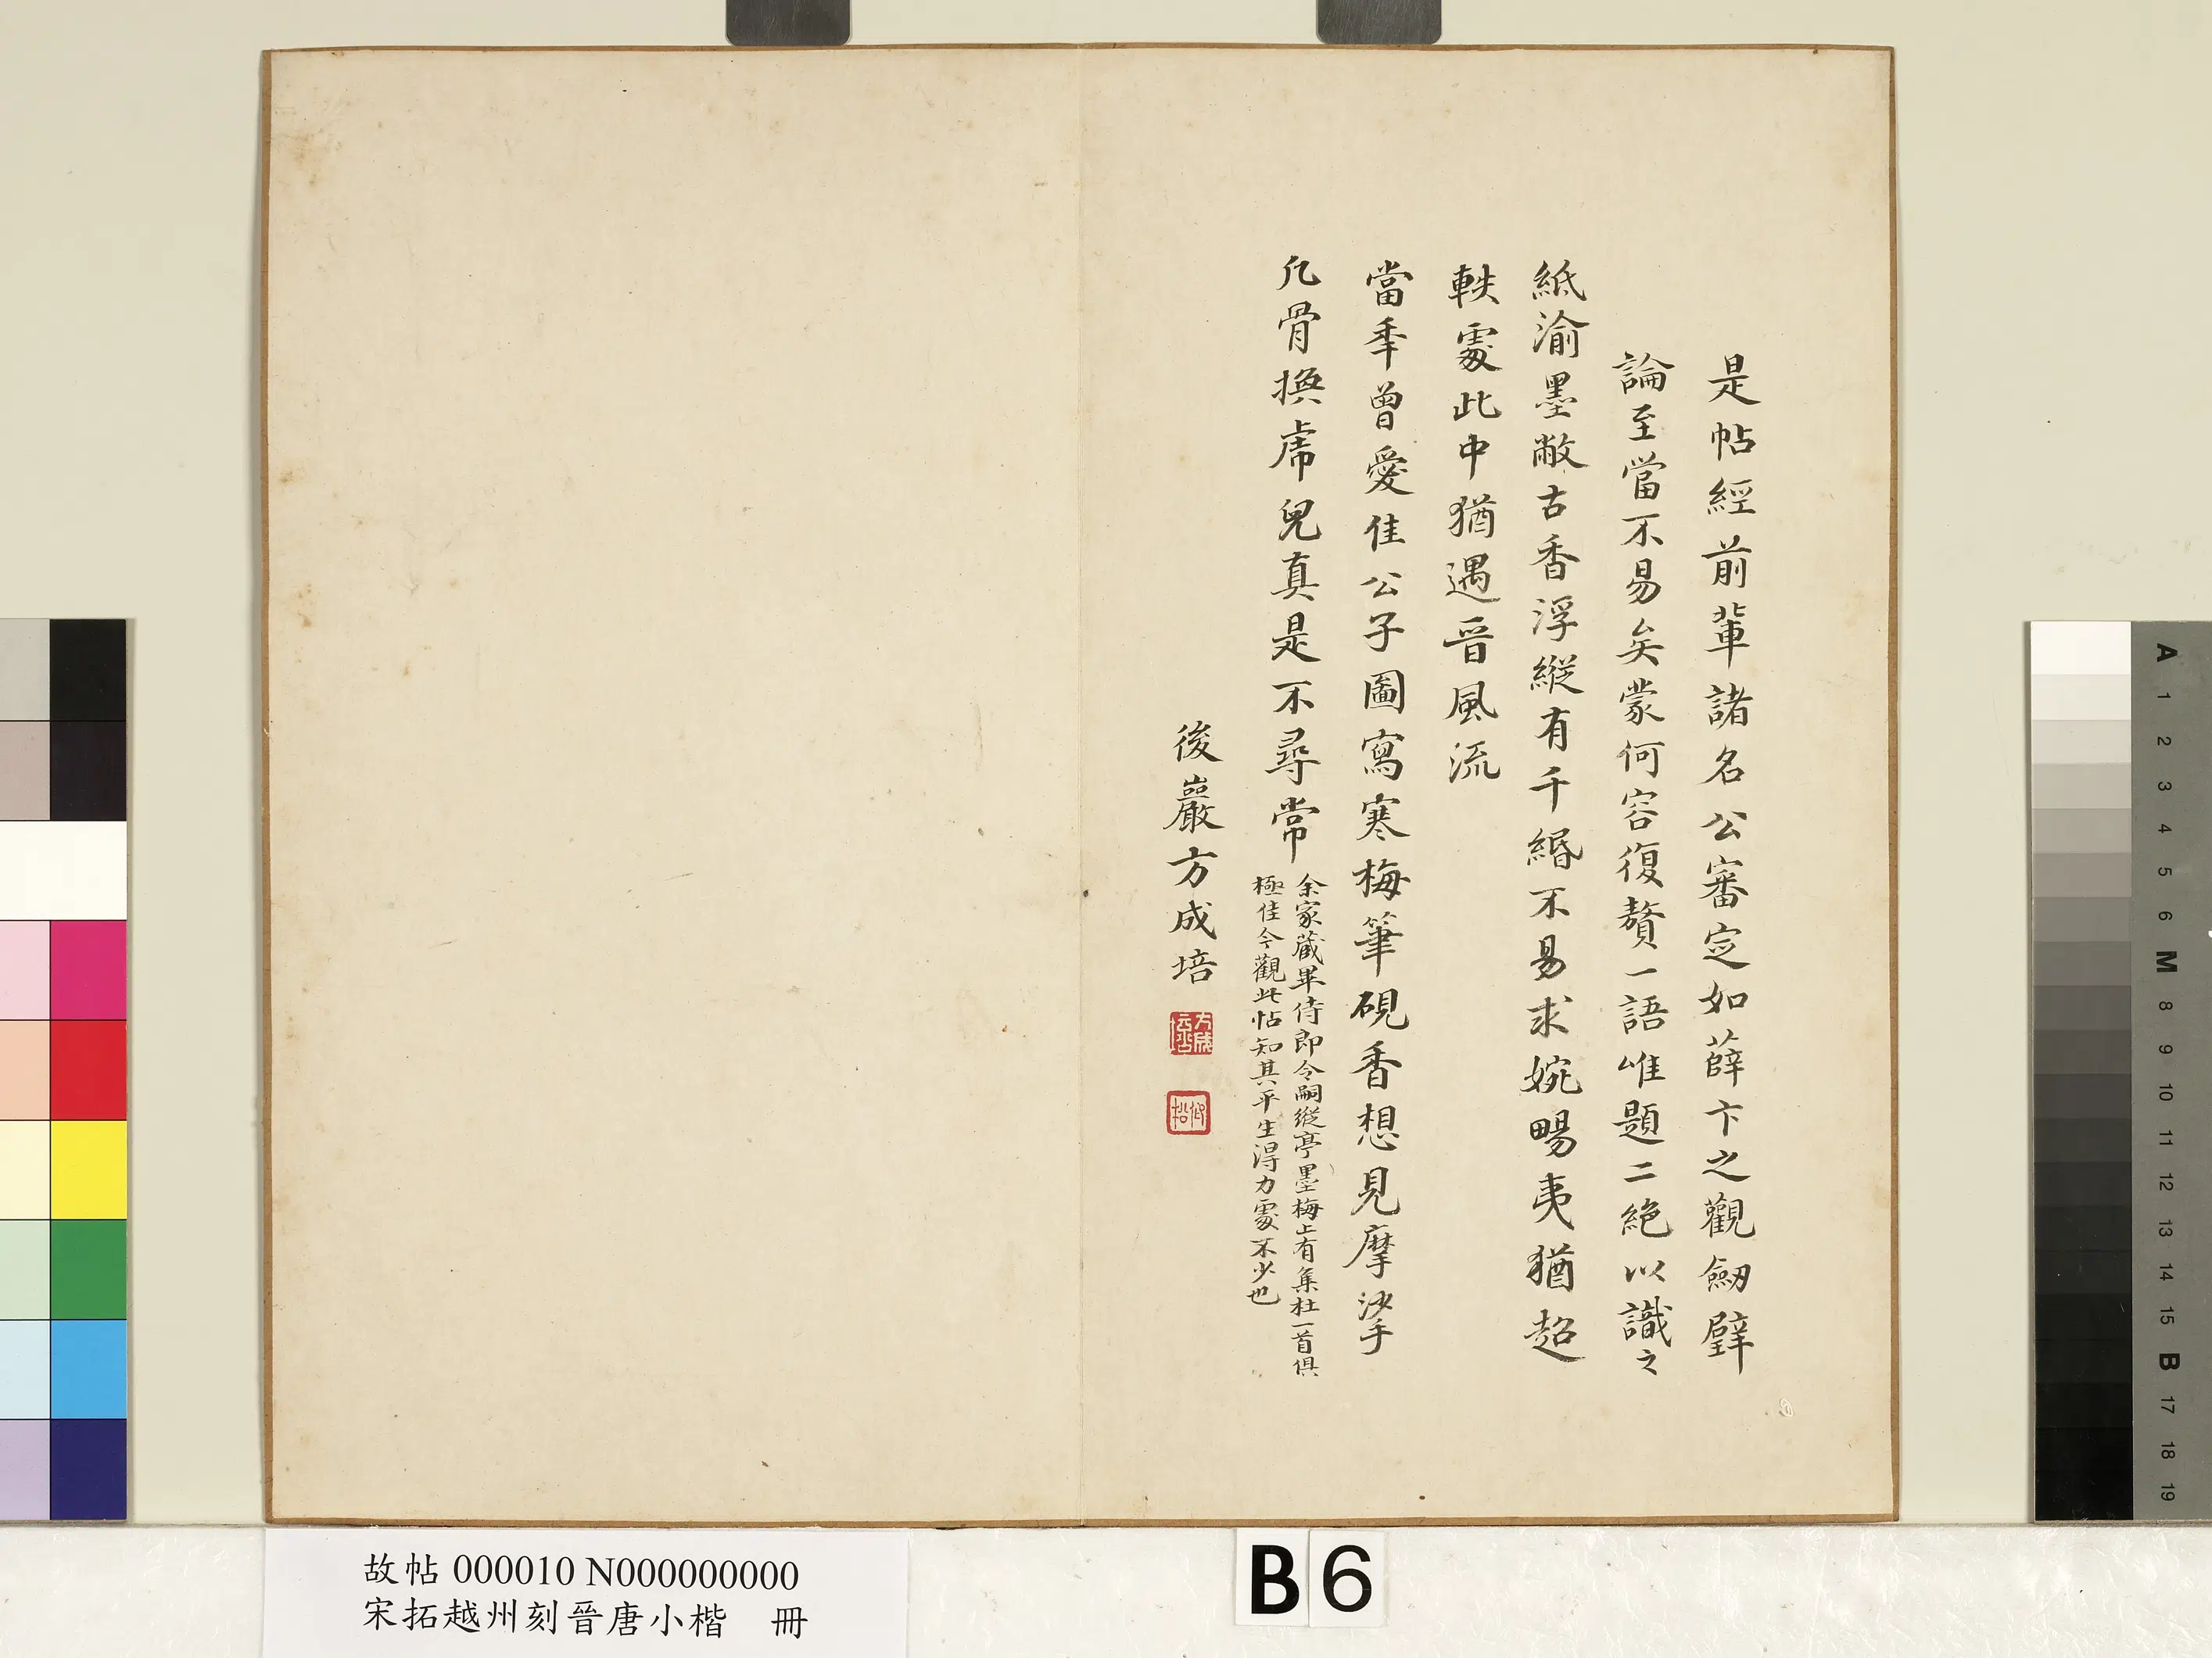 是帖經前輩諸名公審定如薛卞之觀劒璧
論至當不易矣蒙何容復贅一語唯題二絕以識之
紙渝墨敝古香浮縱有千緡不易求婉暢夷猶超
軼處此中猶遇晉風流
當季曾愛佳公子圖寫寒梅筆硯香想見摩挲手
凡骨換虎兒真是不尋常
余家藏畢侍郎令嗣縱亭墨梅上有集杜一首俱
極佳今觀此帖知其平生得力處不少也
後巖方成培
方成培
仰松
故帖 000010 N000000000
宋拓越州刻晉唐小楷 冊
B 6
A
1
2
3
4
5
6
M
8
9
10
11
12
13
14
15
B
17
18
19